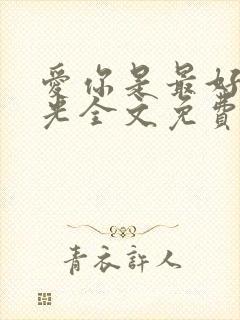 爱你是最好
光全文免費
青衣許人